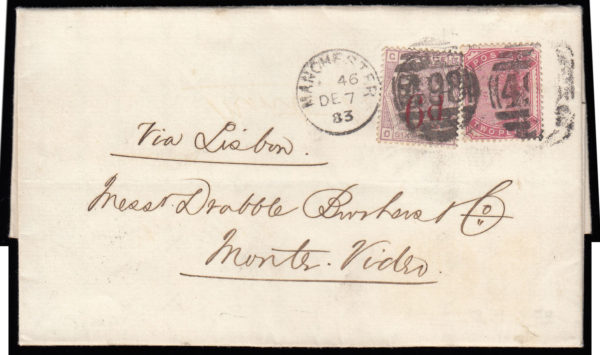 MANCHESTER
46
DE 7
83
6d
498
49
POS
TWO PE
Via Lisbon.
Messrs. Drabble Brothers & Co
Monte. Video.